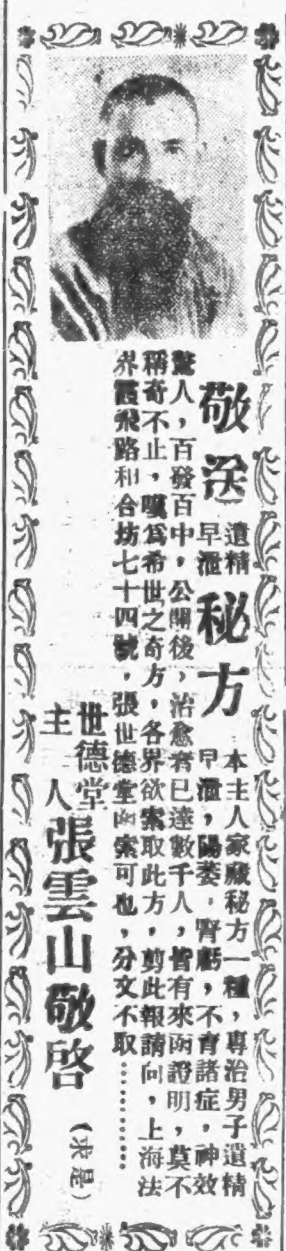 敬送遺精早洩秘方
本主人家藏秘方一種，專治男子遺精
早洩，陽萎，腎虧，不育諸症，神效
驚人，百發百中，公開後，治愈者已達數千人，皆有來函證明，莫不
稱奇不止，嘆爲希世之奇方，各界欲索取此方，剪此報請向，上海法
界霞飛路和合坊七十四號，張世德堂函索可也，分文不取…………
世德堂主人張雲山敬啓
(求是)